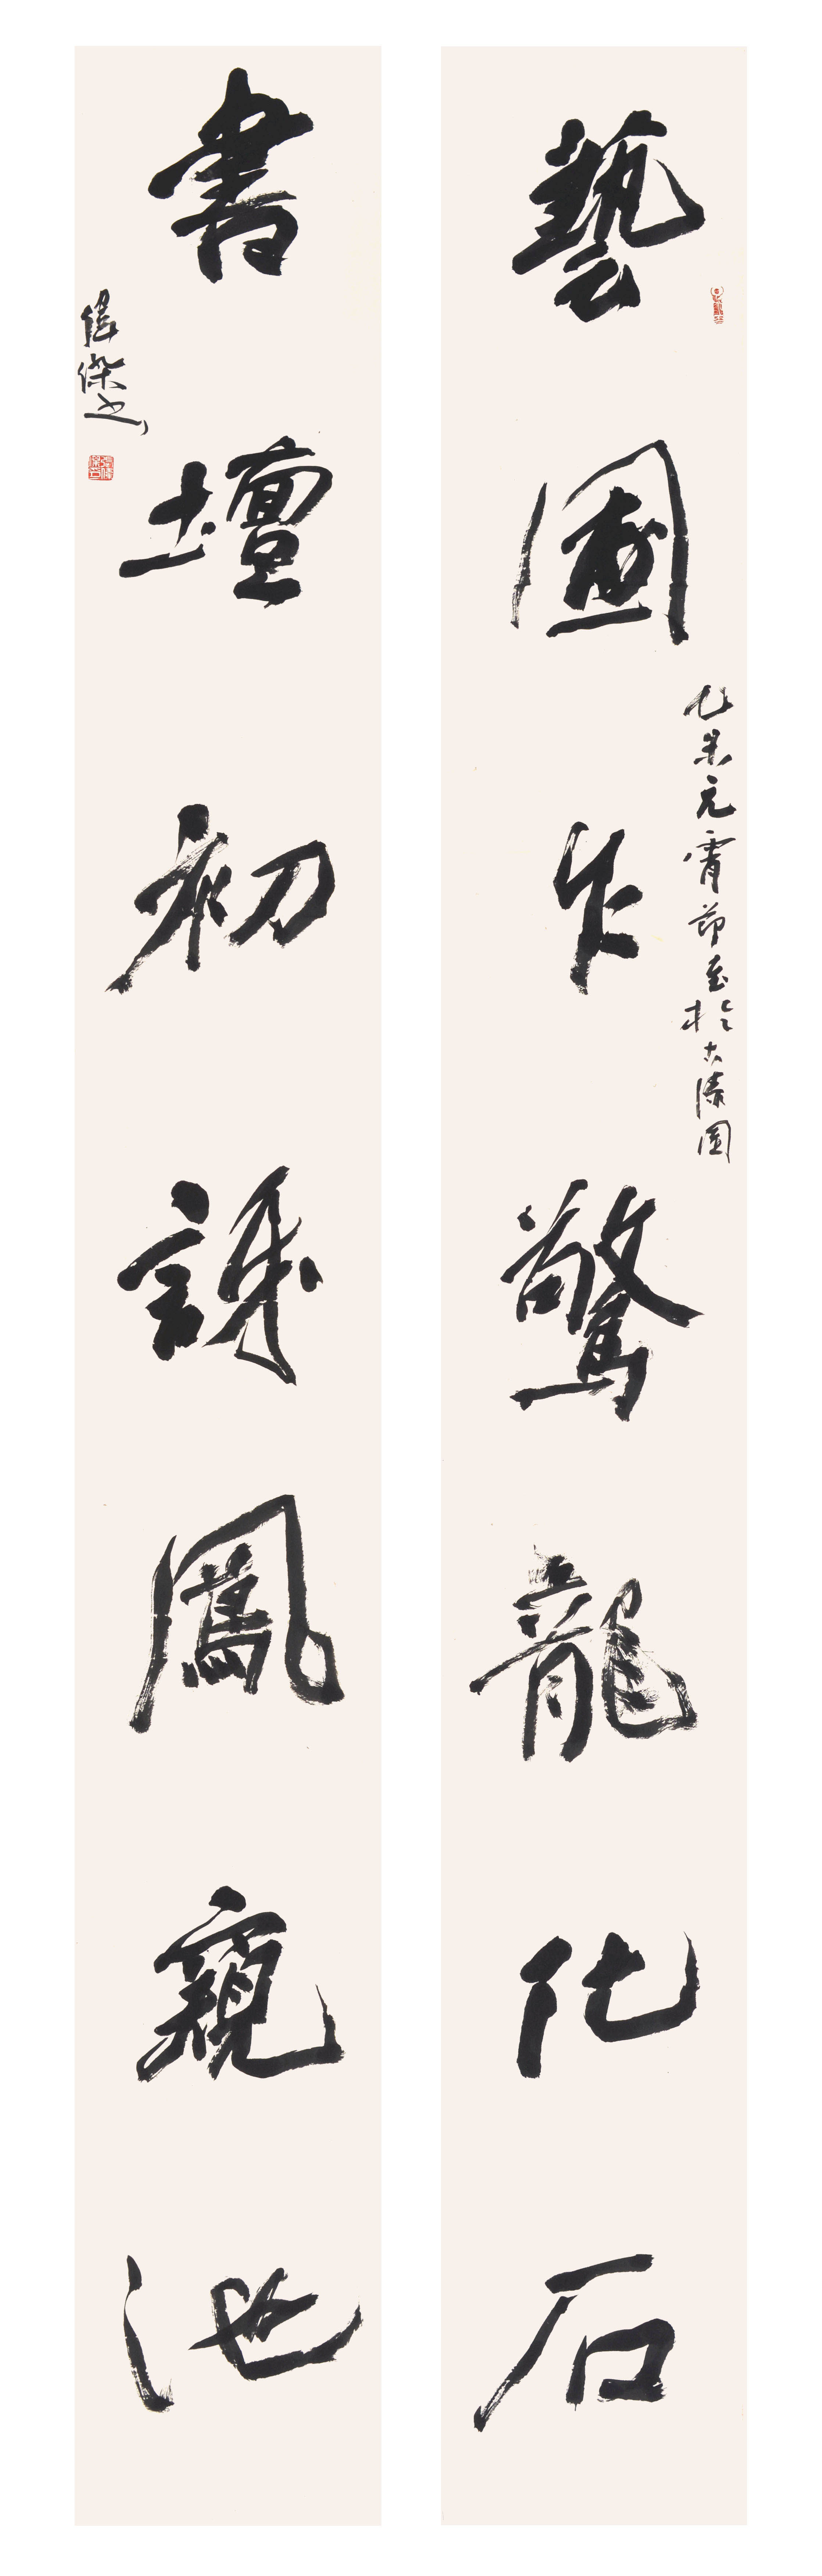 藝圃乍驚龍化石
乙未元宵節至於古漆園
書壇初訝鳳窺池
偉傑書